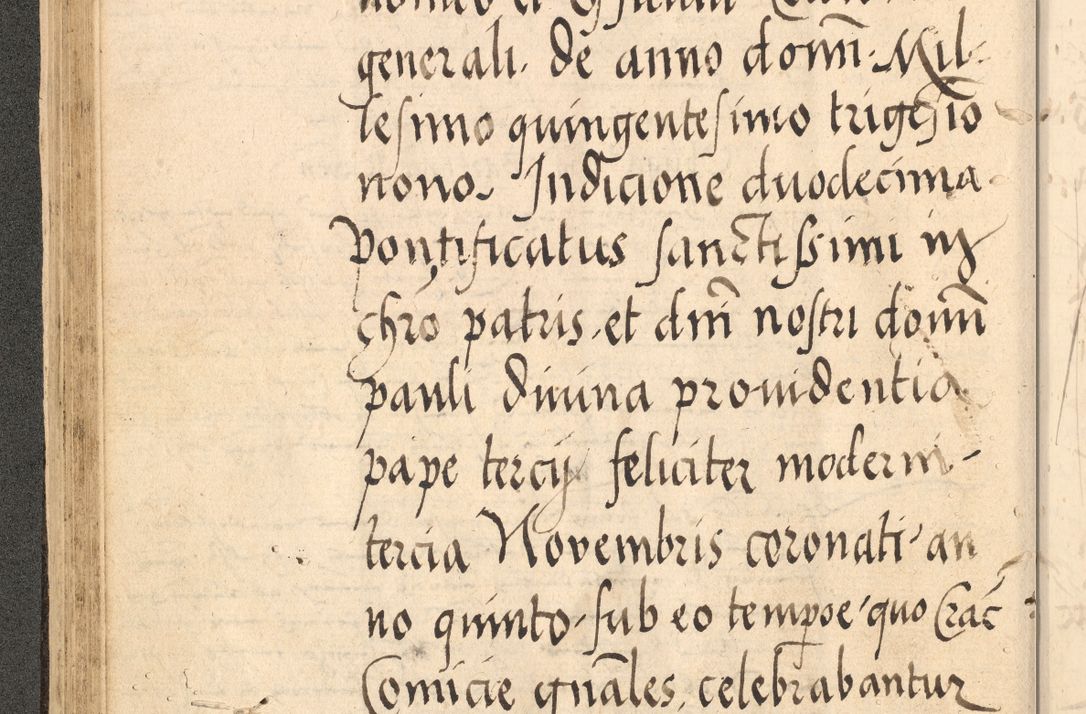 generali. de anno domī. Mil-
lesimo quingentesimo trigesīo
nono. Indicione duodecima
pontificatus sanctissimi in
chro patris. et dnī nostri domī
pauli diuina prouidentia
pape tercij feliciter moderni-
tercia Novembris coronati an
no quinto. sub eo tempoe quo Crac̄
Comicie gnāles. celebrabantur